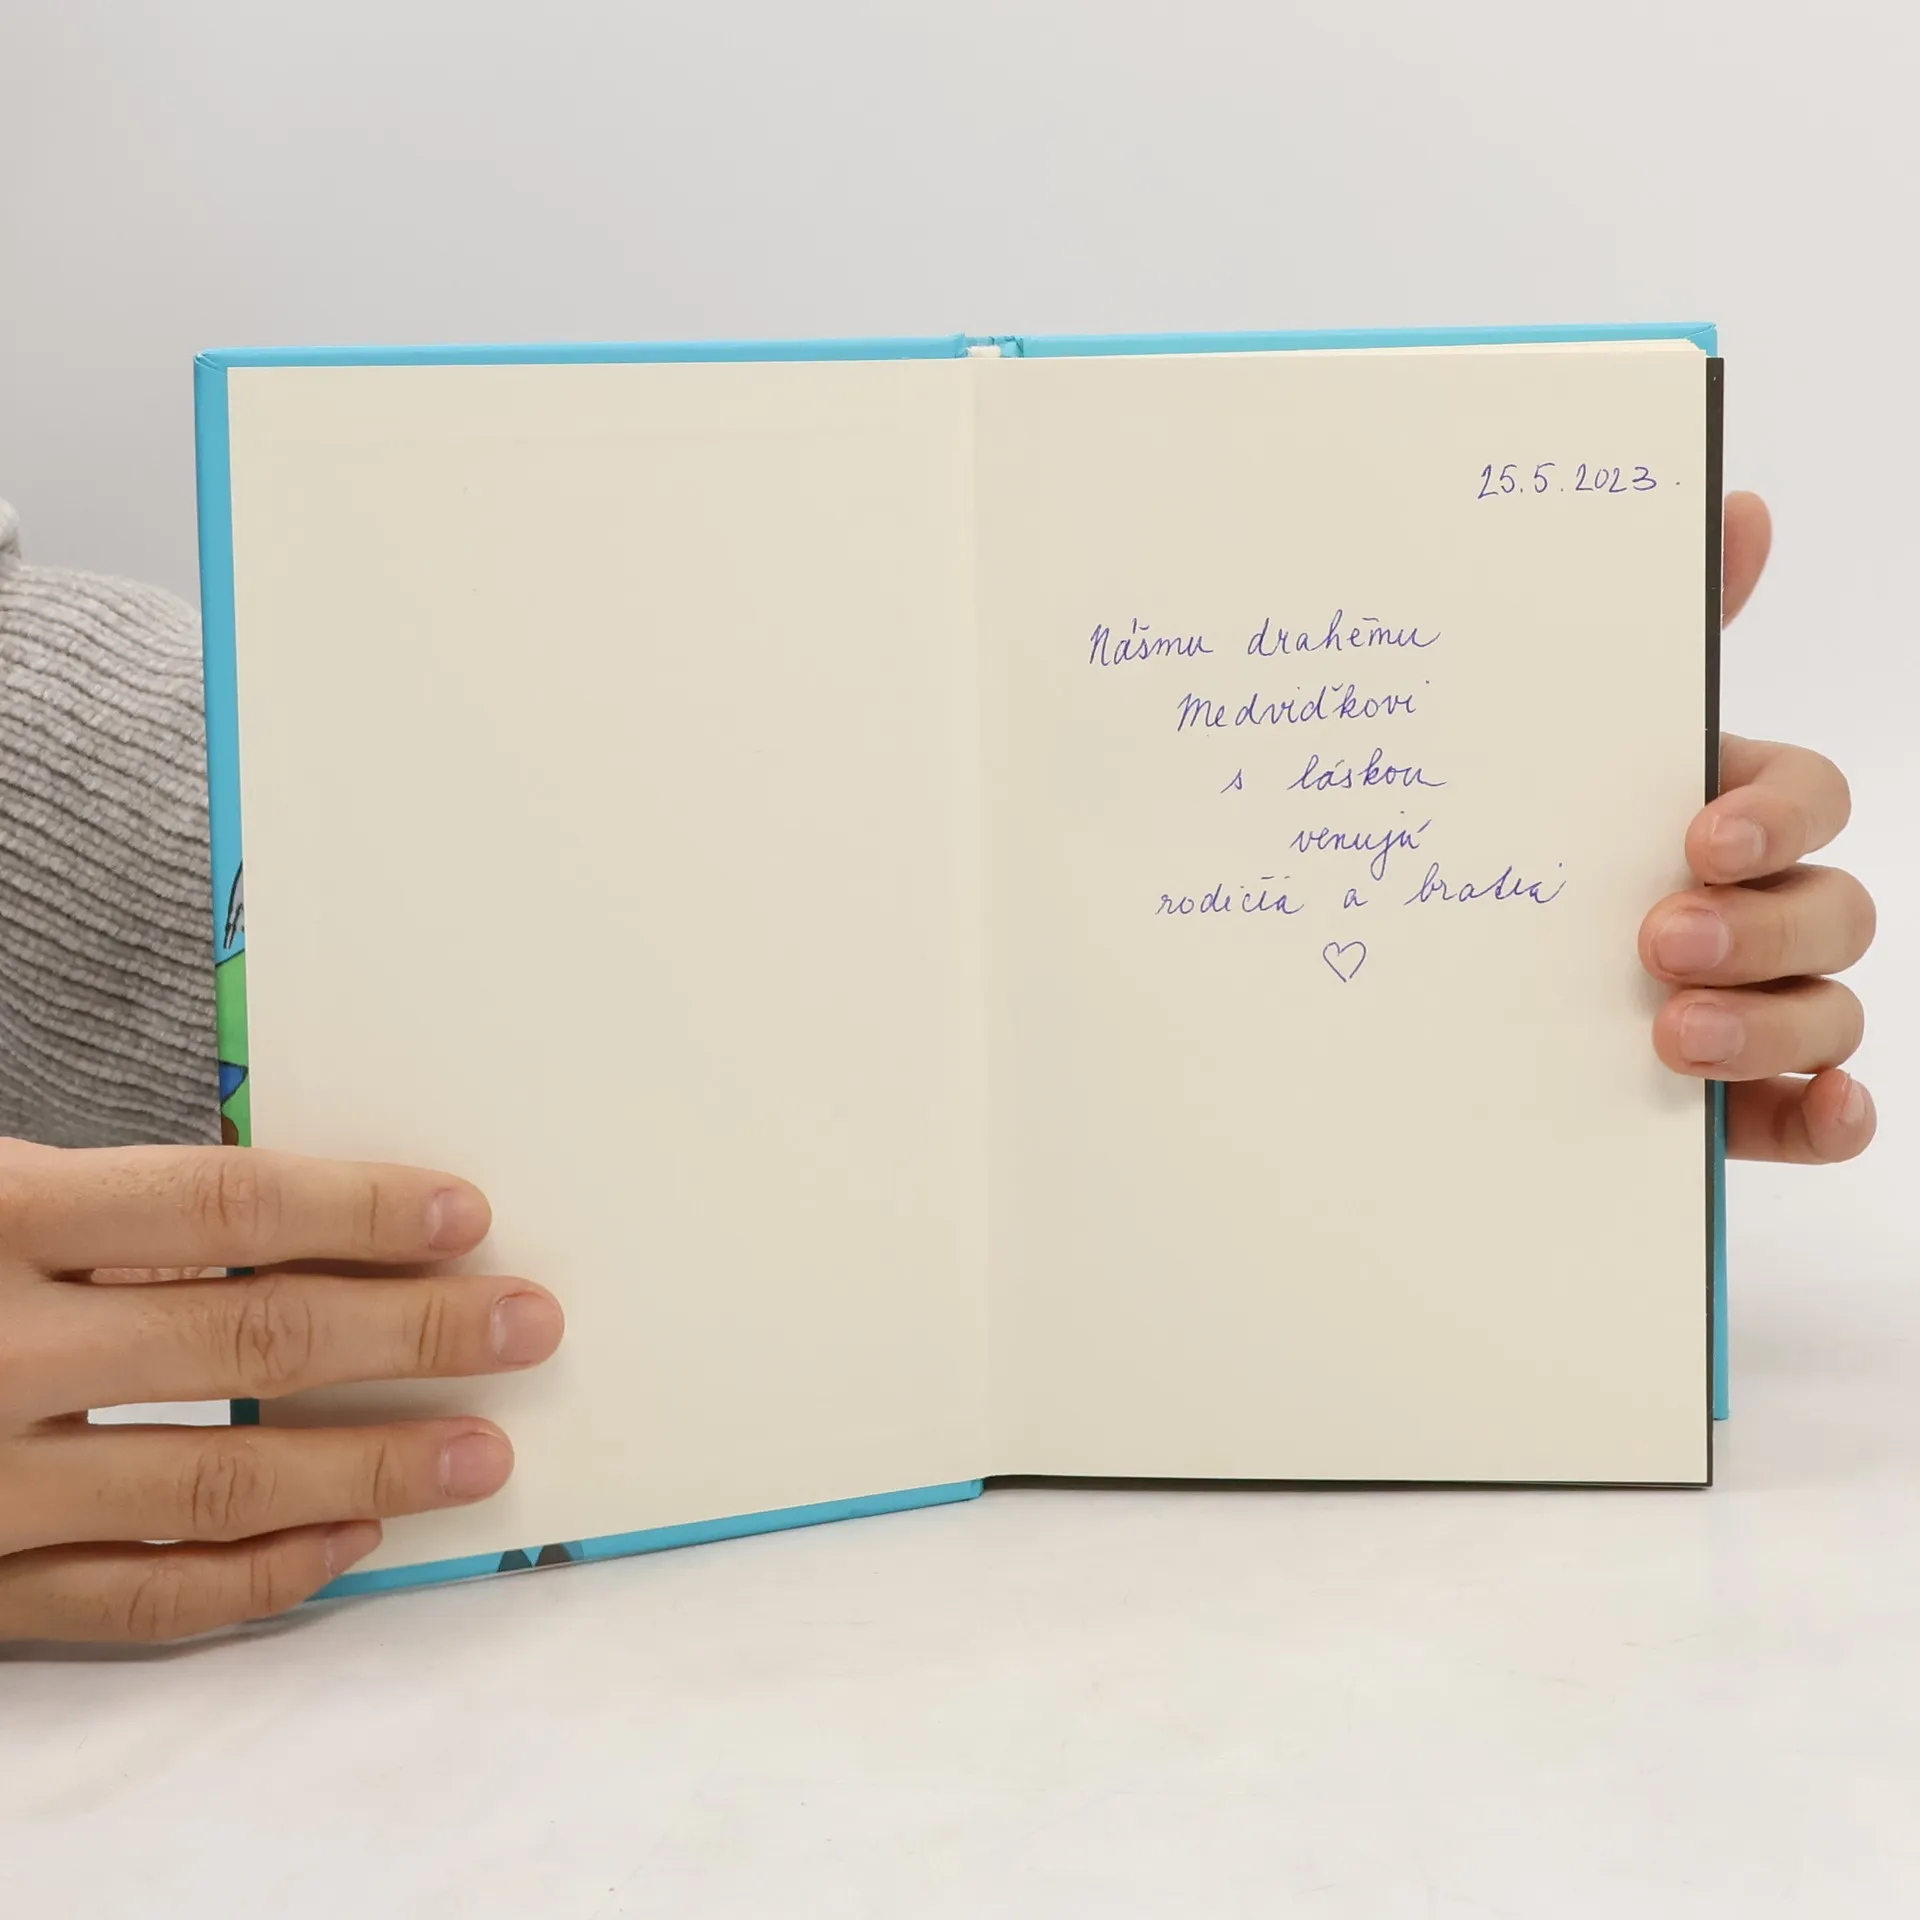 25.5.2023.
Nášmu drahému
Medvidďkovi
s láskou
venujú
rodičia a bratia